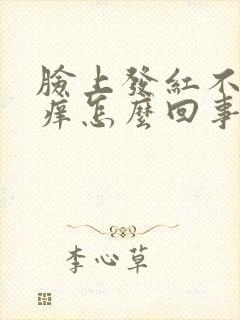 臉上發紅不
痒怎麼回事
李心草